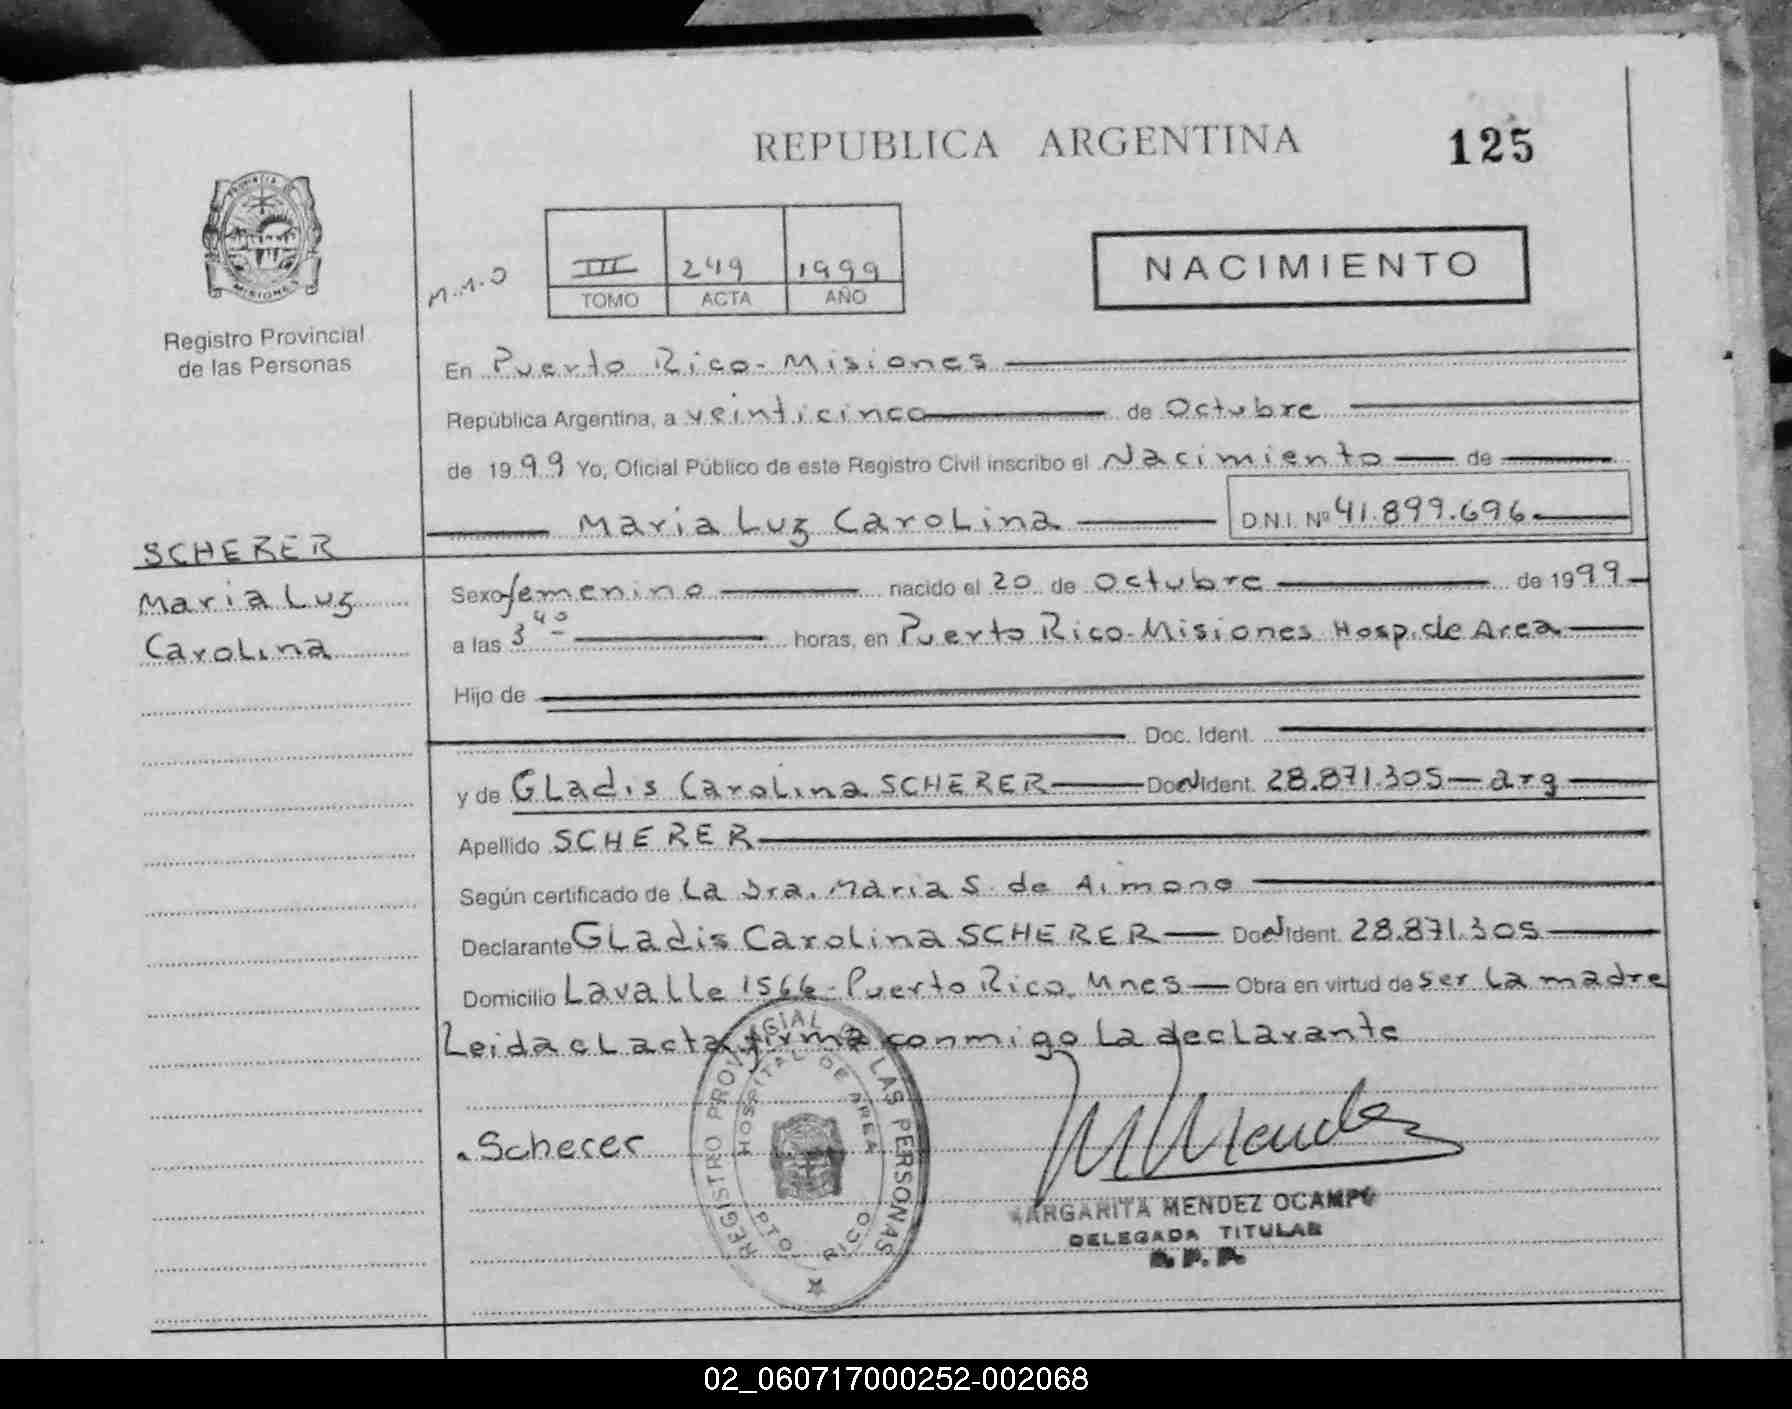 REPUBLICA ARGENTINA
125
PROVINCIA DE
MISIONES
Registro Provincial
de las Personas
M.M.O
III 249 1999
TOMO ACTA AÑO
NACIMIENTO
En Puerto Rico - Misiones
República Argentina, a veinticinco de Octubre
de 1999 Yo, Oficial Público de este Registro Civil inscribo el Nacimiento de
Maria Luz Carolina D.N.I. Nº 41.899.696
SCHERER
Maria Luz
Carolina
Sexo femenino nacido el 20 de Octubre de 1999
a las 3 40 horas, en Puerto Rico - Misiones Hosp. de Area
Hijo de
Doc. Ident.
y de Gladis Carolina SCHERER Doc. Ident. 28.871.305 - arg
Apellido SCHERER
Según certificado de La Dra. Maria S. de Aimone
Declarante Gladis Carolina SCHERER Doc. Ident. 28.871.305
Domicilio Lavalle 1566 - Puerto Rico. Mnes Obra en virtud de ser la madre
Leida el acta firma conmigo la declarante
Scherer
REGISTRO PROVINCIAL DE LAS PERSONAS
HOSPITAL DE AREA
PTO. RICO
M Mendez
MARGARITA MENDEZ OCAMPO
DELEGADA TITULAR
R. P. P.
02_060717000252-002068